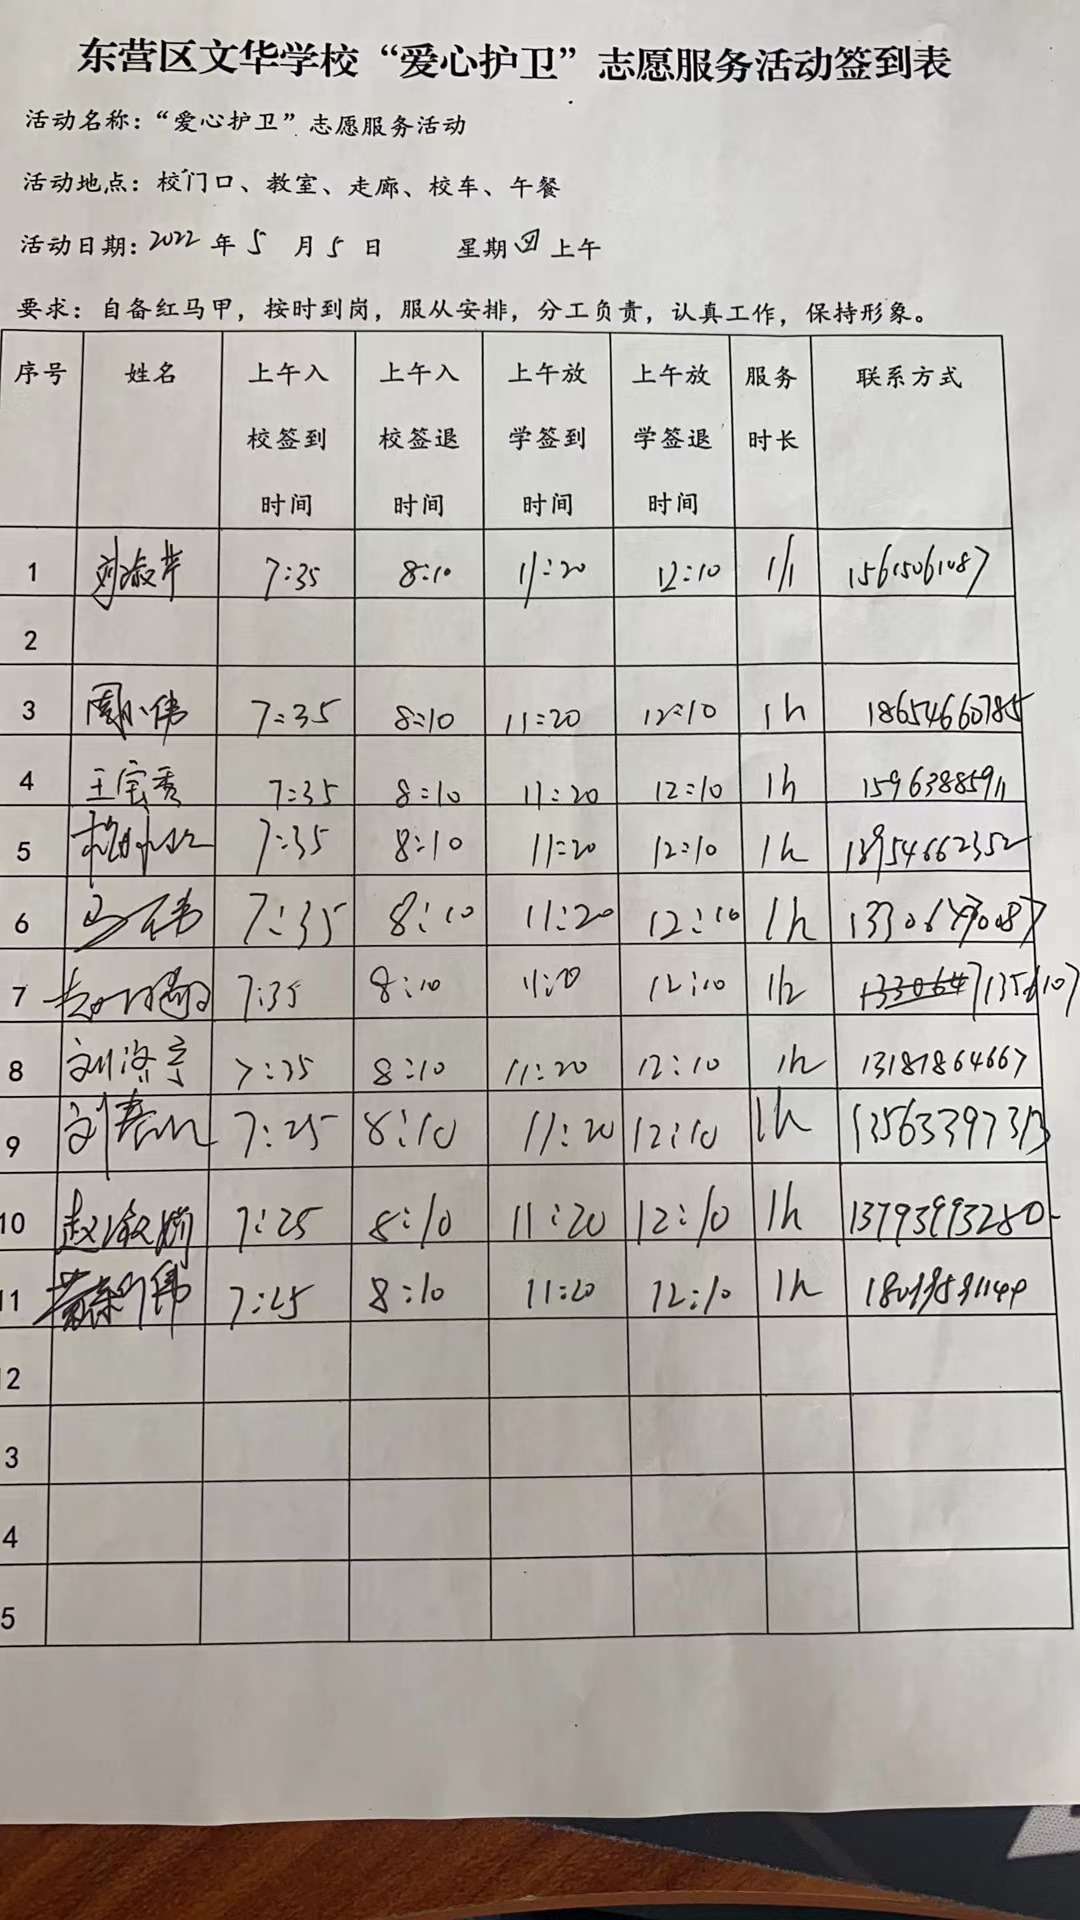 东营区文华学校“爱心护卫”志愿服务活动签到表
活动名称：“爱心护卫”志愿服务活动
活动地点：校门口、教室、走廊、校车、午餐
活动日期：2022年5月5日 星期四上午
要求：自备红马甲，按时到岗，服从安排，分工负责，认真工作，保持形象。
序号 姓名 上午入校签到时间 上午入校签退时间 上午放学签到时间 上午放学签退时间 服务时长 联系方式
1 刘淑芹 7:35 8:10 11:20 12:10 15615061087
2
3 周小伟 7:35 8:10 11:20 12:10 1h 18654660785
4 王宝秀 7:35 8:10 11:20 12:10 1h 15963885911
5 7:35 8:10 11:20 12:10 1h 18954662352
6 马伟 7:35 8:10 11:20 12:10 1h
7 7:35 8:10 12:10 1h
8 7:35 8:10 11:20 12:10 1h 13181864667
9 7:25 8:10 11:20 12:10 1h 13563397313
10 7:25 8:10 11:20 12:10 1h 13793993280
11 7:25 8:10 11:20 12:10 1h
12
3
4
5